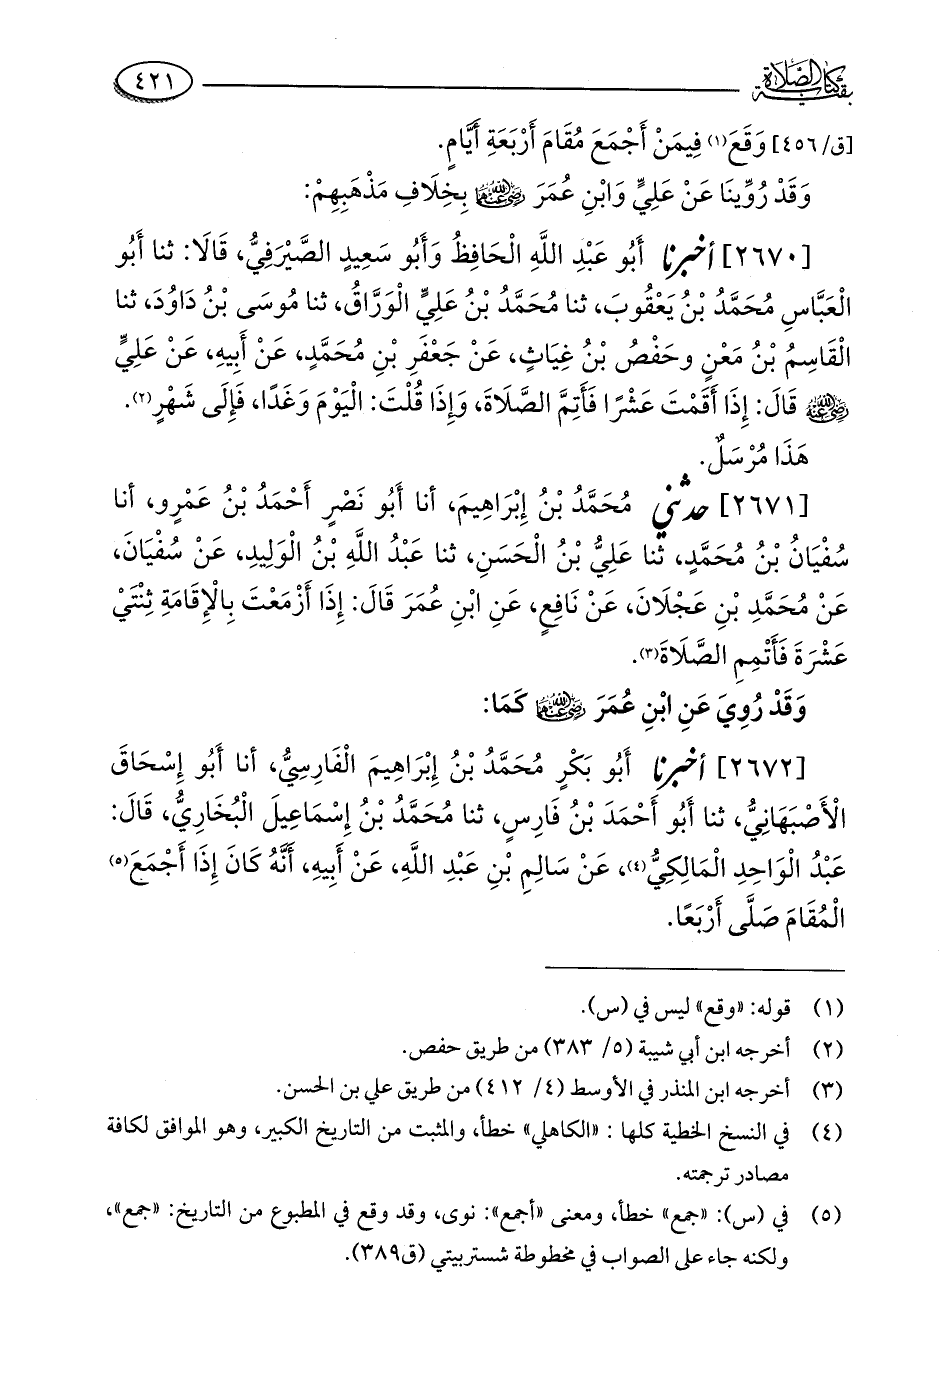 بقية كتاب الصلاة
٤٢١
[ق/ ٤٥٦] وَقَعَ(١) فِيمَنْ أَجْمَعَ مُقَامَ أَرْبَعَةِ أَيَّامٍ.
وَقَدْ رُوِّينَا عَنْ عَلِيٍّ وَابْنِ عُمَرَ رضي الله عنهما بِخِلَافِ مَذْهَبِهِمْ:
[٢٦٧٠] أخبرنا أَبُو عَبْدِ اللَّهِ الْحَافِظُ وَأَبُو سَعِيدٍ الصَّيْرَفِيُّ، قَالَا: ثنا أَبُو
الْعَبَّاسِ مُحَمَّدُ بْنُ يَعْقُوبَ، ثنا مُحَمَّدُ بْنُ عَلِيٍّ الْوَرَّاقُ، ثنا مُوسَى بْنُ دَاوُدَ، ثنا
الْقَاسِمُ بْنُ مَعْنٍ وحَفْصُ بْنُ غِيَاثٍ، عَنْ جَعْفَرِ بْنِ مُحَمَّدٍ، عَنْ أَبِيهِ، عَنْ عَلِيٍّ
رضي الله عنه قَالَ: إِذَا أَقَمْتَ عَشْرًا فَأَتِمَّ الصَّلَاةَ، وَإِذَا قُلْتَ: الْيَوْمَ وَغَدًا، فَإِلَى شَهْرٍ(٢).
هَذَا مُرْسَلٌ.
[٢٦٧١] حدثني مُحَمَّدُ بْنُ إِبْرَاهِيمَ، أنا أَبُو نَصْرٍ أَحْمَدُ بْنُ عَمْرٍو، أنا
سُفْيَانُ بْنُ مُحَمَّدٍ، ثنا عَلِيُّ بْنُ الْحَسَنِ، ثنا عَبْدُ اللَّهِ بْنُ الْوَلِيدِ، عَنْ سُفْيَانَ،
عَنْ مُحَمَّدِ بْنِ عَجْلَانَ، عَنْ نَافِعٍ، عَنِ ابْنِ عُمَرَ قَالَ: إِذَا أَزْمَعْتَ بِالْإِقَامَةِ ثِنْتَيْ
عَشْرَةَ فَأَتْمِمِ الصَّلَاةَ(٣).
وَقَدْ رُوِيَ عَنِ ابْنِ عُمَرَ رضي الله عنهما كَمَا:
[٢٦٧٢] أخبرنا أَبُو بَكْرٍ مُحَمَّدُ بْنُ إِبْرَاهِيمَ الْفَارِسِيُّ، أنا أَبُو إِسْحَاقَ
الْأَصْبَهَانِيُّ، ثنا أَبُو أَحْمَدَ بْنُ فَارِسٍ، ثنا مُحَمَّدُ بْنُ إِسْمَاعِيلَ الْبُخَارِيُّ، قَالَ:
عَبْدُ الْوَاحِدِ الْمَالِكِيُّ(٤)، عَنْ سَالِمِ بْنِ عَبْدِ اللَّهِ، عَنْ أَبِيهِ، أَنَّهُ كَانَ إِذَا أَجْمَعَ(٥)
الْمُقَامَ صَلَّى أَرْبَعًا.
(١) قوله: «وقع» ليس في (س).
(٢) أخرجه ابن أبي شيبة (٥/ ٣٨٣) من طريق حفص.
(٣) أخرجه ابن المنذر في الأوسط (٤/ ٤١٢) من طريق علي بن الحسن.
(٤) في النسخ الخطية كلها : «الكاهلي» خطأ، والمثبت من التاريخ الكبير، وهو الموافق لكافة
مصادر ترجمته.
(٥) في (س): «جمع» خطأ، ومعنى «أجمع»: نوى، وقد وقع في المطبوع من التاريخ: «جمع»،
ولكنه جاء على الصواب في مخطوطة شستربيتي (ق٣٨٩).